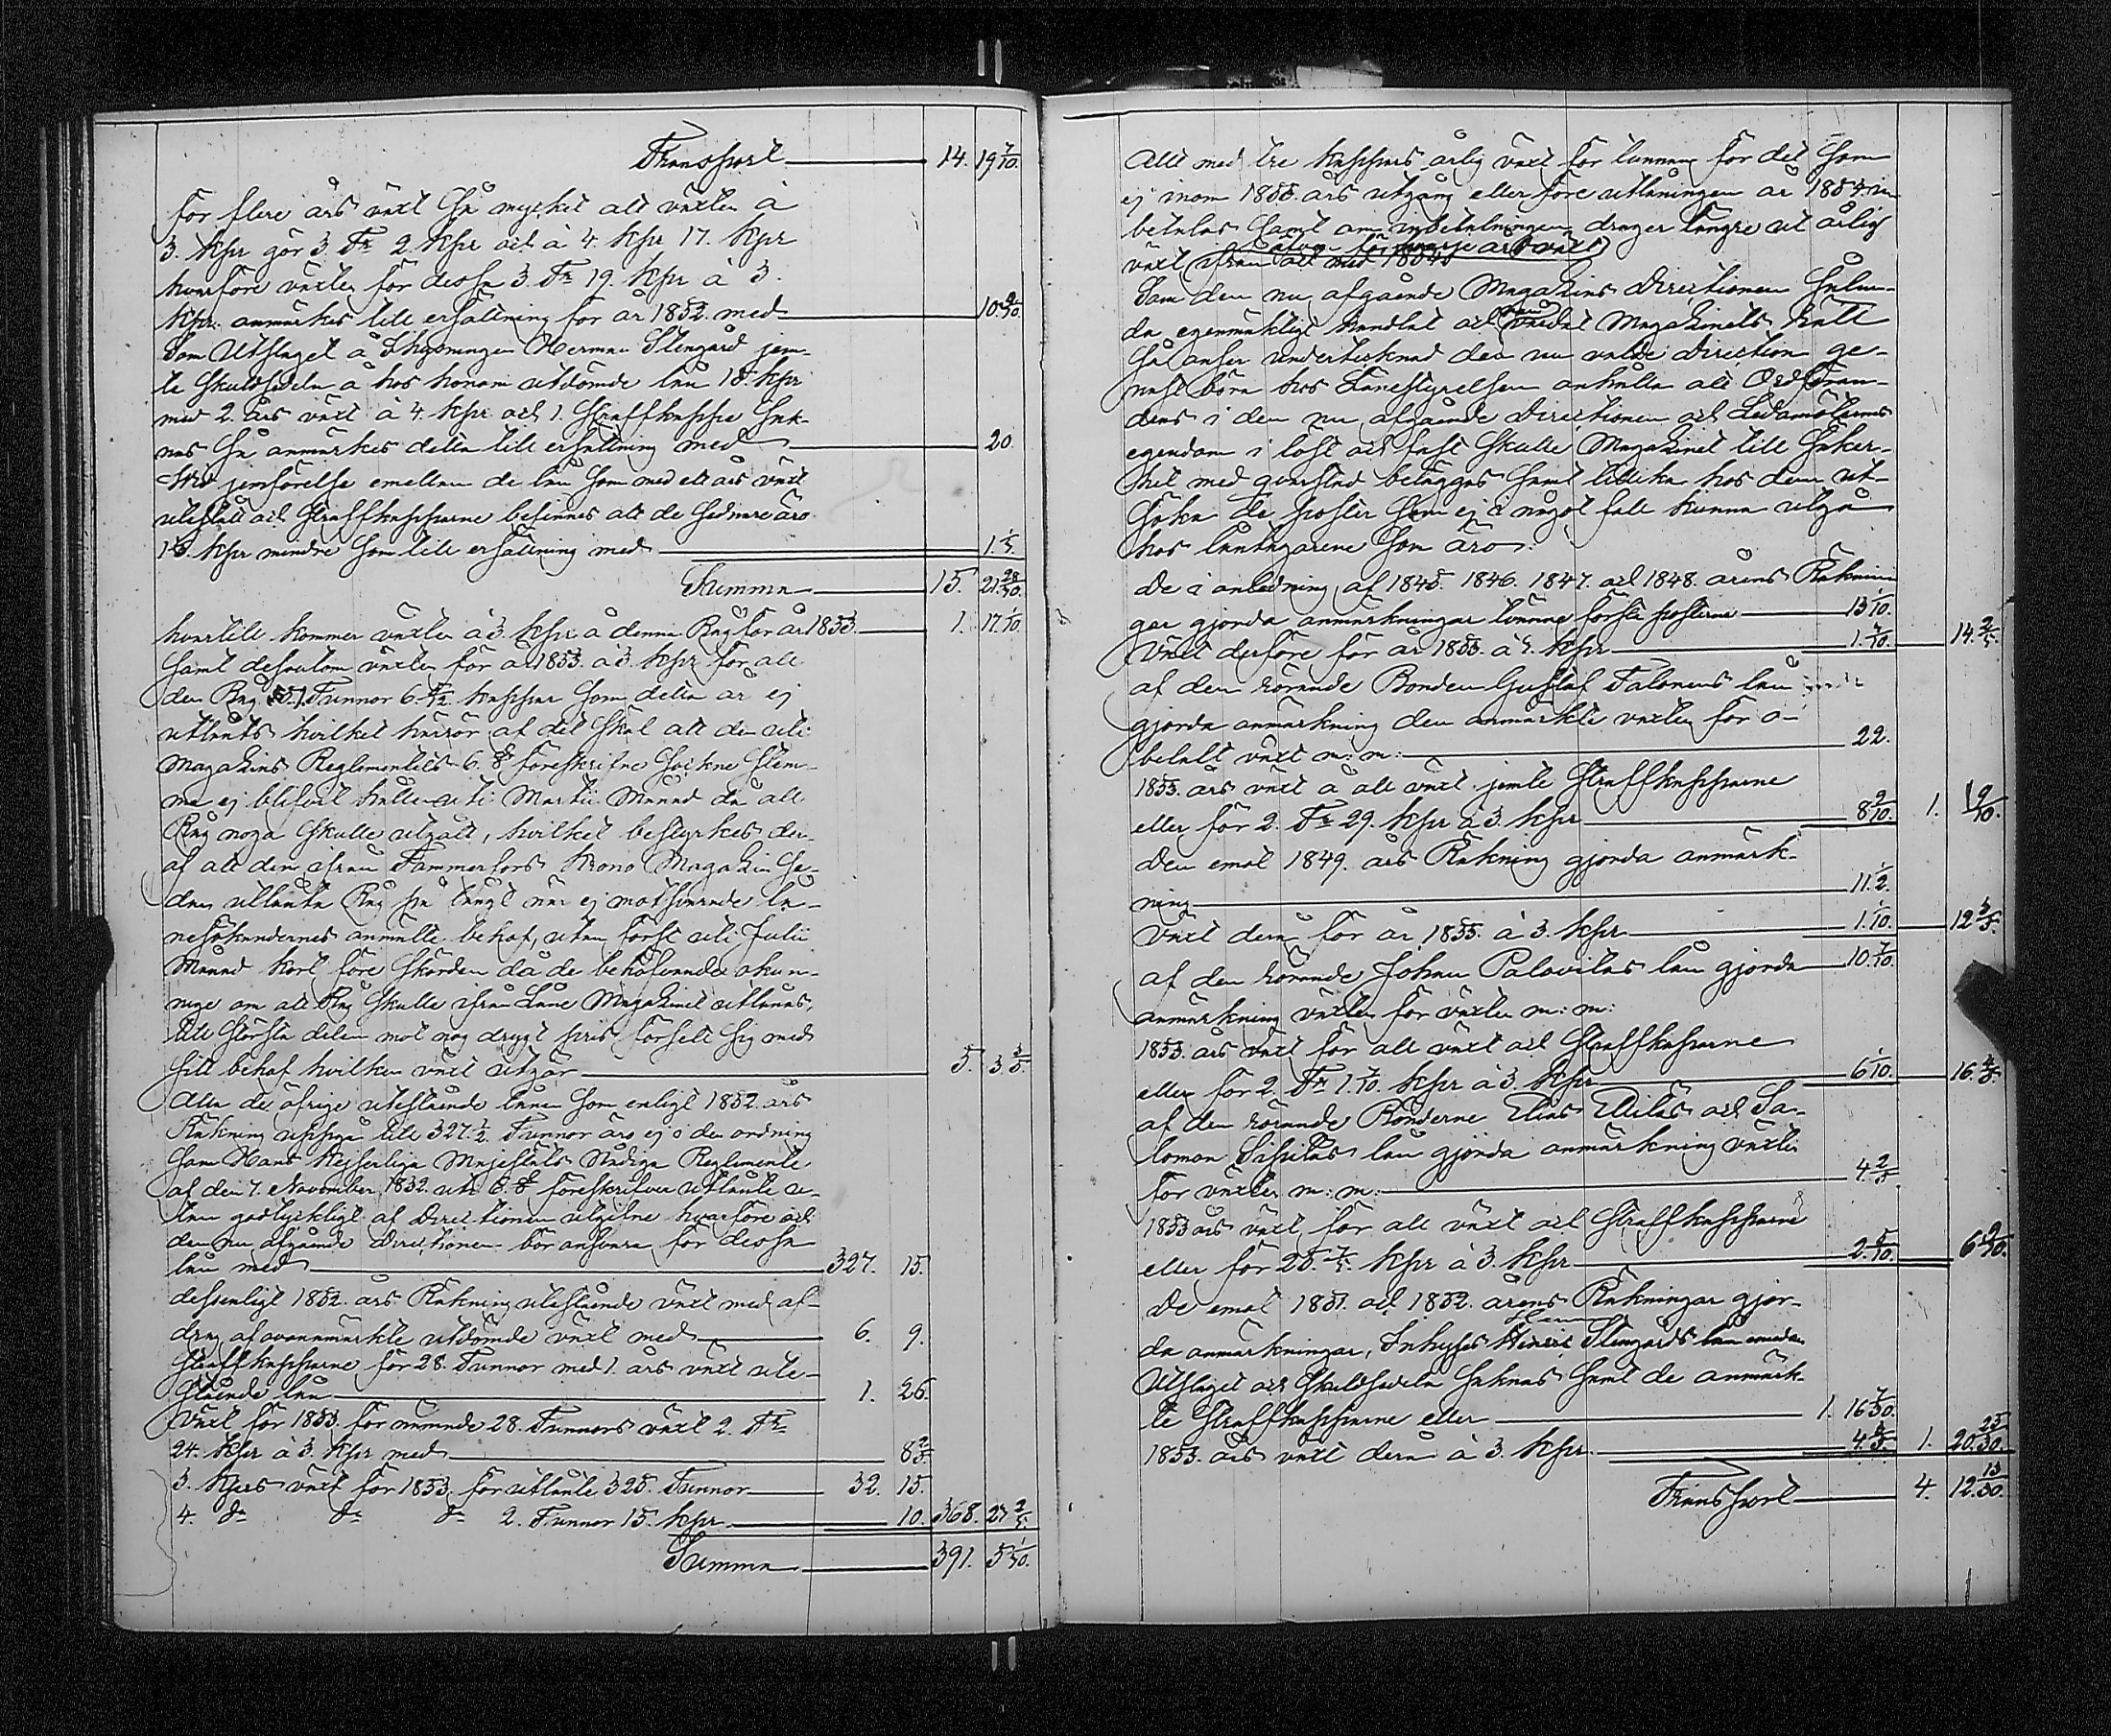 Transport 14. 19 7/10.
för flere års växt så mycket att växten à
3. kpr gör 3. Tr 2 kpr och à 4. kpr 17. kpr
hvarföre växten för dessa 3. Tr 19. kpr à 3.
kpr anmärkes till ersättning för år 1852. med 10.
Som Utslaget å Herman Stengård jem-
te Skuldsedeln å hos honom utdömde lån 15. kpr
med 2. års växt à 4 kpr och 1. Straffkappe sak-
nas så anmärkes detta till ersättning med 20.
Wid jemförelse emellan de lån som med ett års växt
utestått och Straffkapparne befinnes att de sednare äro
kpr mindre som till ersättning med 1.
Summa 15. 21.
hvartill kommer växten à 3. kpr å denna Råg för år 1853. 1. 17
samt dessutom växten för år 1853. à 3. kpr för all
den Råg 51. Tunnor 6. kappar som detta år ej
utlånts hvilket härrör af det skäl att den uti
Magazins Reglementets 6. § föreskrifne Sockne stem-
ma ej blifvit hållen uti Martii Månad då all
Råg noga skulle utgått, hvilket bestyrkes der-
af att den ifrån Tammerfors Krono Magazin se-
dan utlånta Råg på långt när ej motsvarade lå-
nesökandernes anmälte behof, utan först uti Julii
Månad kort före skörden då de behöfvande okun-
nige om att Råg skulle ifrån Låne Magazinet utlånas,
till största delen mot nog drygt pris försett sig med
sitt behof hvilken växt utgör 5. 3 3/5.
Alla de öfrige utestående lånen som enligt 1852. års
Räkning uppgå till 327. 1/2 Tunnor äro ej i den ordning
som Hans Kejserliga Majestäts Nådiga Reglemente
af den 7. November 1832. uti 6. § föreskrifver utlånte u-
tan godtyckligt af Directionen utgifne hvarföre och
den nu afgående Directionen bör ansvara för dessa
lån med 327. 15.
dessenligt 1852. års Räkning utestående växt med af-
drag af ovananmärkte utdömde växt med 6. 9.
Straffkapparne för 28. Tunnor med 1. års växt ute-
stående lån 1. 26.
Växt för 1853. för nämnde 28. Tunnors växt 2. Tr
24. kpr à 3. kpr med 8 2/5
3. kprs växt för 1853. för utlånte 325. Tunnor 32. 15.
4. do do do 2. Tunnor 15. kpr 10. 368. 27 2/5.
Summa 391. 5 1/10.
Allt med tre kappars årlig växt för tunnan för det som
ej inom 1853. års utgång eller före utlåningen år 1854 in-
betalas samt om inbetalningen drager längre ut årlig
växt ifrån och med 1854
Som den nu afgående Magazins Directionen sålun-
da egenmäktigt handlat och Magazinets
så anser undertecknad den nu valde Direction ge-
nast böra hos Länestyrelsen anhålla att Ordföran-
dens i den nu afgående Directionen och Ledamöternes
egendom i löst och fast skulle Magazinet till säker-
het med qvarstad beläggas samt tillika hos dem ut-
söka de poster som ej i något fall kunna utgå
hos låntagarene som äro:
De i anledning af 1845. 1846. 1847. och 1848. årens Räknin-
gar gjorda anmärkningar tvänne första posterne 13 1/10.
Växt derföre för år 1853. à 3. kpr 1. 14. 2/5
af den rörande Bonden Gustaf Talonens lån
gjorda anmärkning den anmärkte växten för o-
betalt växt m: m: 22.
1853. års växt å all växt jemte Straffkapparne
eller för 2. Tr 29. kpr à 3. kpr 8 9/10. 1. 9/10.
Den emot 1849. års Räkning gjorda anmärk-
ning 11 1/2.
Växt derå för år 1853. à 3. kpr 1. 1/10. 12 3/5
af den rörande Johan Palovitas lån gjorda 10 7/10.
anmärkning växten för växten m: m:
1853. års växt för all växt och Straffkapparne
eller för 2. Tr 1. 7/10. kpr à 3. kpr 6 1/10. 16. 4/5.
af den rörande Bönderne Elias och Sa-
lomon lån gjorda anmärkning växten
för växten m: m: 4 2/5
1853 års växt för all växt och Straffkapparne
eller för 25. kpr à 3. kpr 2. 5/10. 6 9/10.
De emot 1851. och 1852. årens Räkningar gjor-
da anmärkningar, Inhyses Stengårds lån
Utslaget och Skuldsedeln saknas samt de anmärk-
te Straffkapparne eller 1. 16
1853. års växt derå à 3. kpr 4. 1. 20. 25/30.
Transport 4. 12.